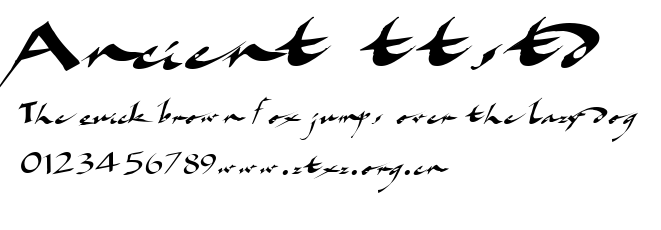 Ancient ttstd
The quick brown fox jumps over the lazy dog
0123456789www.ztxz.org.cn